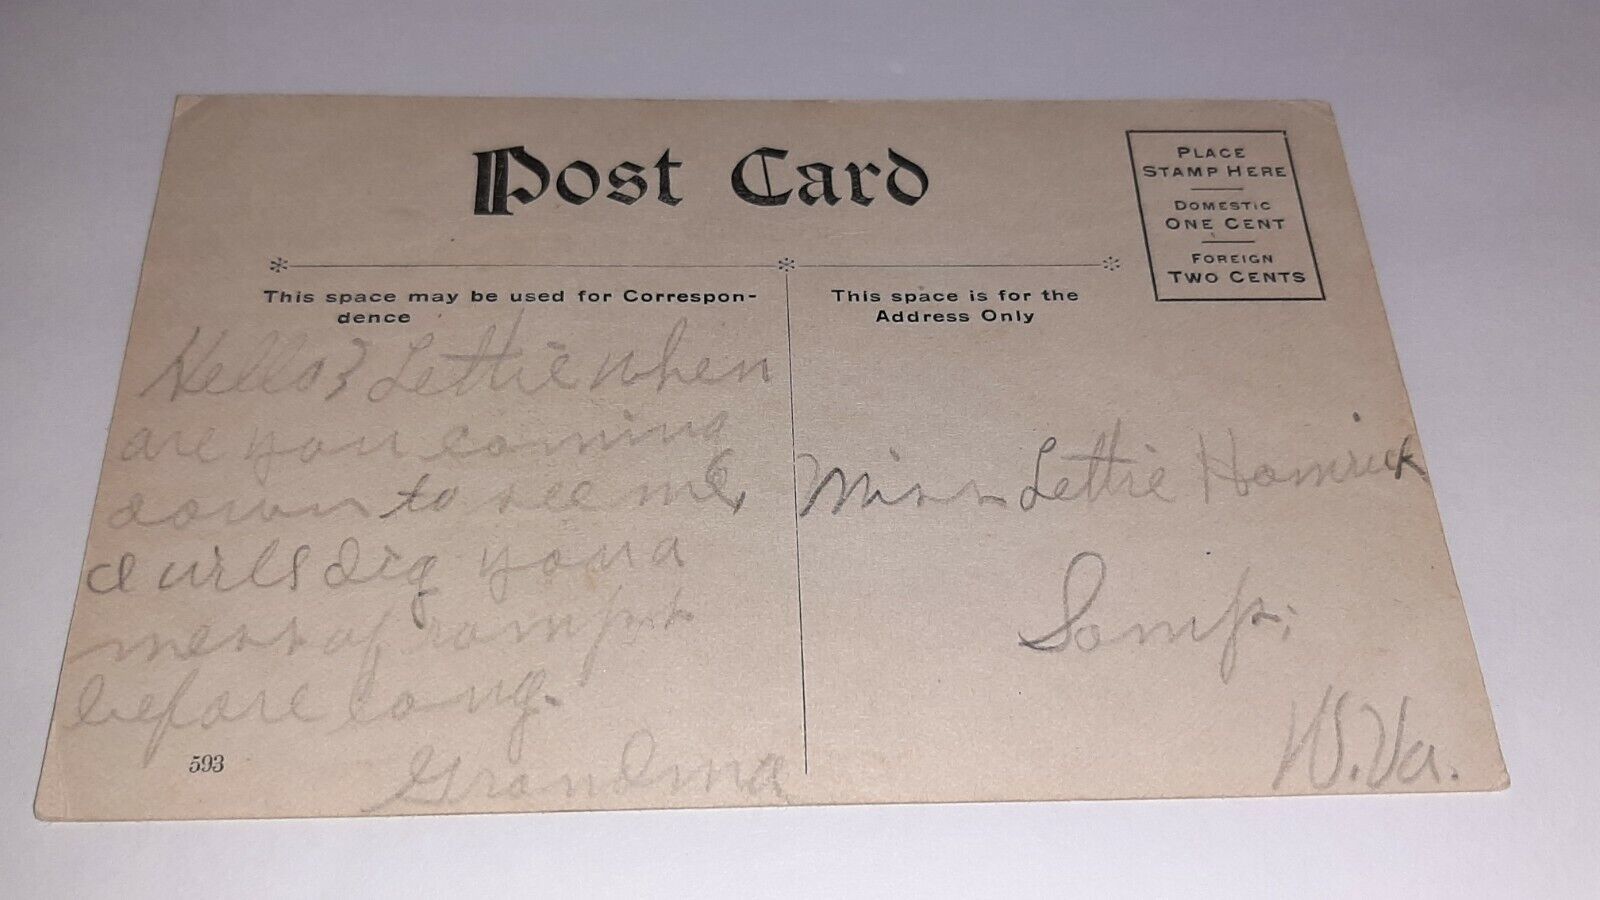 Post Card
PLACE
STAMP HERE
DOMESTIC
ONE CENT
FOREIGN
TWO CENTS
This space may be used for Correspon-
dence
This space is for the
Address Only
Hello Lettie when
are you coming
down to see me,
I will dig you a
mess of ramps
before long.
Grandma
593
Miss Lettie Hamrick
W.Va.